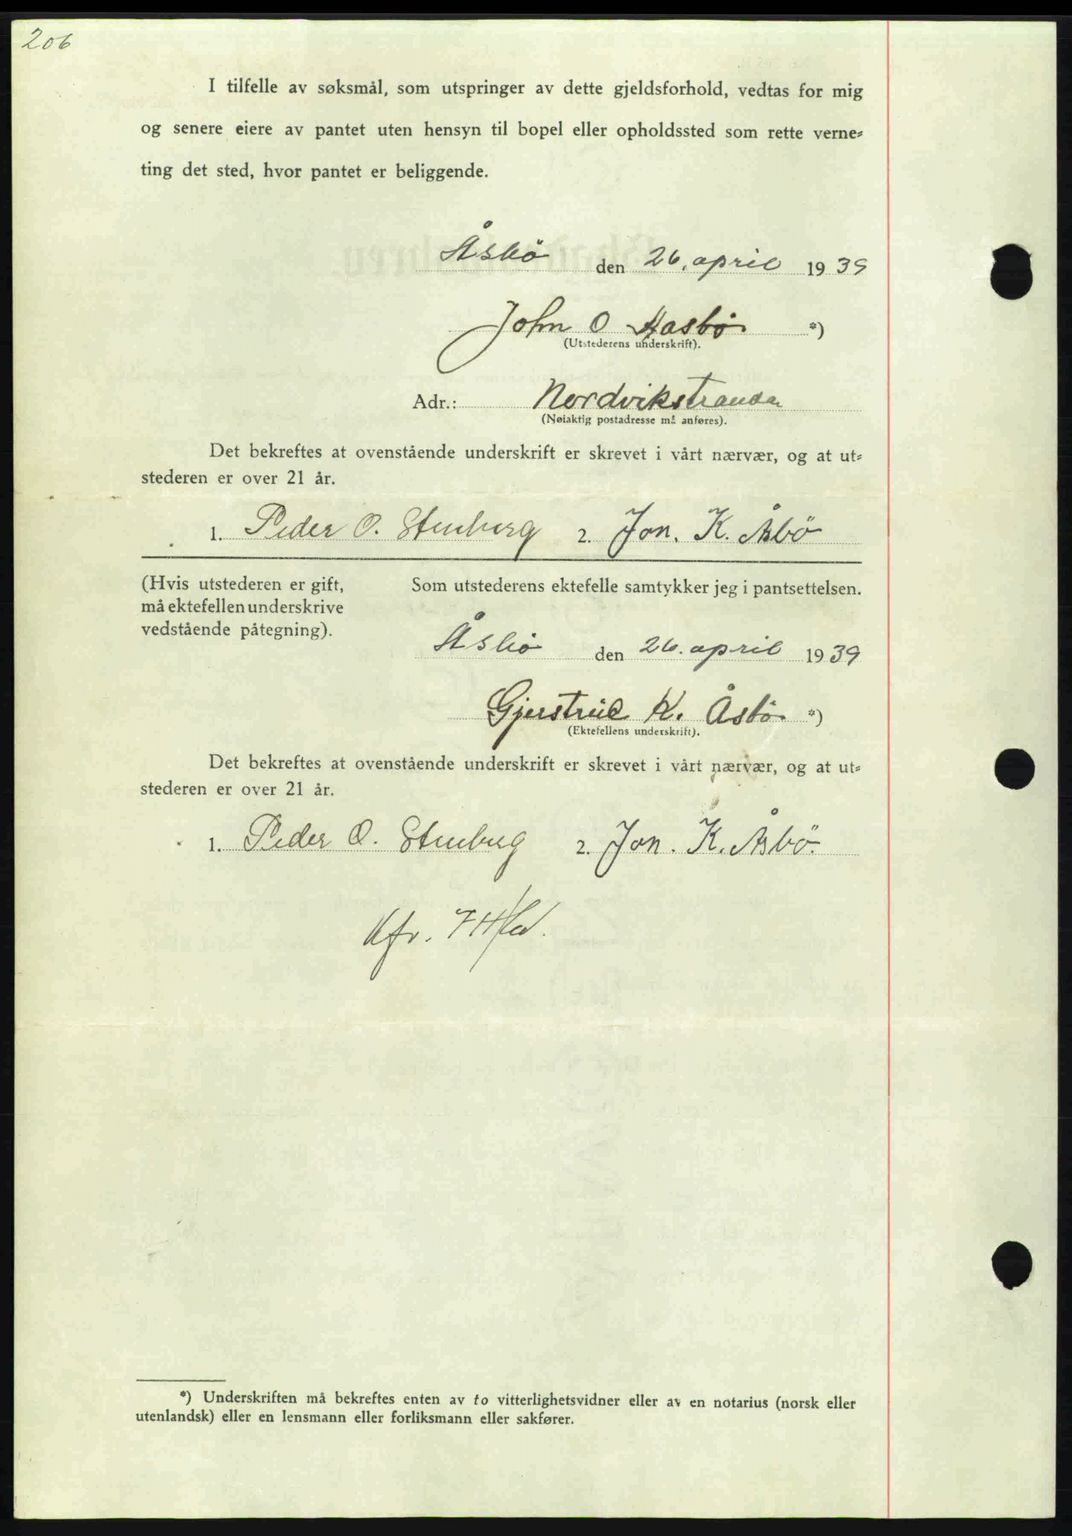 206
I tilfelle av søksmål, som utspringer av dette gjeldsforhold, vedtas for mig
og senere eiere av pantet uten hensyn til bopel eller opholdssted som rette verne-
ting det sted, hvor pantet er beliggende.
Åsbö den 26. april 1939
John O Aasbø *)
(Utstederens underskrift).
Adr.: Nordvikstranda
(Nøiaktig postadresse må anføres).
Det bekreftes at ovenstående underskrift er skrevet i vårt nærvær, og at ut-
stederen er over 21 år.
1. Peder O. Stenberg 2. Jon. K. Åsbö
(Hvis utstederen er gift,
må ektefellen underskrive
vedstående påtegning).
Som utstederens ektefelle samtykker jeg i pantsettelsen.
Åsbö den 26. april 1939
Gjerstrud K. Åsbø *)
(Ektefellens underskrift).
Det bekreftes at ovenstående underskrift er skrevet i vårt nærvær, og at ut-
stederen er over 21 år.
1. Peder O. Stenberg 2. Jon. K. Åsbö.
Kfr.
*) Underskriften må bekreftes enten av to vitterlighetsvidner eller av en notarius (norsk eller
utenlandsk) eller en lensmann eller forliksmann eller sakfører.